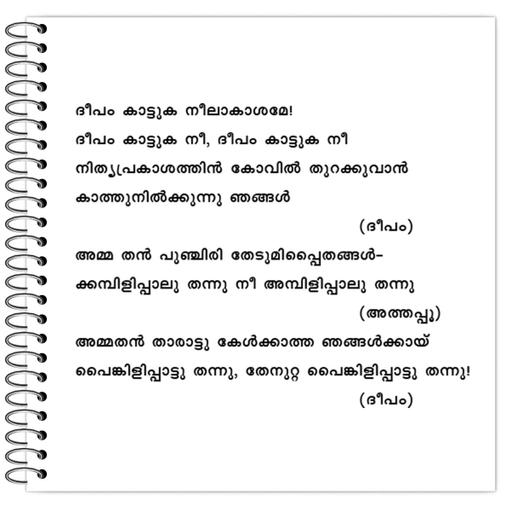 ദീപം കാട്ടുക നീലാകാശമേ!
ദീപം കാട്ടുക നീ, ദീപം കാട്ടുക നീ
നിത്യപ്രകാശത്തിൻ കോവിൽ തുറക്കുവാൻ
കാത്തുനിൽക്കുന്നു ഞങ്ങൾ
(ദീപം)
അമ്മ തൻ പുഞ്ചിരി തേടുമിപ്പൈതങ്ങൾ-
ക്കമ്പിളിപ്പാലു തന്നു നീ അമ്പിളിപ്പാലു തന്നു
(അത്തപ്പൂ)
അമ്മതൻ താരാട്ടു കേൾക്കാത്ത ഞങ്ങൾക്കായ്
പൈങ്കിളിപ്പാട്ടു തന്നു, തേനൂറ്റ പൈങ്കിളിപ്പാട്ടു തന്നു!
(ദീപം)